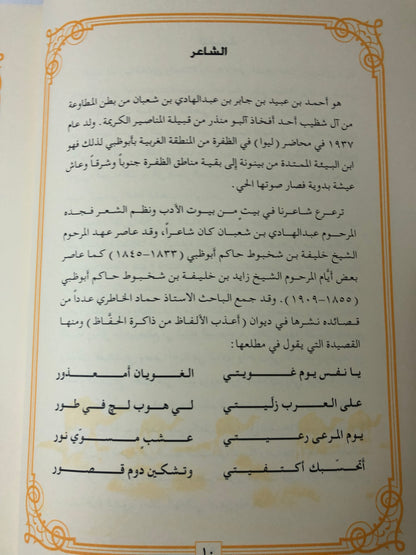 الشاعر
هو أحمد بن عبيد بن جابر بن عبدالهادي بن شعبان من بطن المطاوعة
من آل شظيب أحد أفخاذ آلبو منذر من قبيلة المناصير الكريمة. ولد عام
١٩٣٧ في محاضر (ليوا) في الظفرة من المنطقة الغربية بأبوظبي لذلك فهو
ابن البيئة الممتدة من بينونة إلى بقية مناطق الظفرة جنوباً وشرقاً وعاش
عيشة بدوية فصار صوتها الحي.
ترعرع شاعرنا في بيتٍ من بيوت الأدب ونظم الشعر فجده
المرحوم عبدالهادي بن شعبان كان شاعراً، وقد عاصر عهد المرحوم
الشيخ خليفة بن شخبوط حاكم أبوظبي (١٨٣٣-١٨٤٥) كما عاصر
بعض أيّام المرحوم الشيخ زايد بن خليفة بن شخبوط حاكم أبوظبي
(١٨٥٥-١٩٠٩). وقد جمع الباحث الاستاذ حماد الخاطري عدداً من
قصائده نشرها في ديوان (أعذب الألفاظ من ذاكرة الحفَّاظ) ومنها
القصيدة التي يقول في مطلعها:
يا نفس يوم غـويـتي الغـويان أمـعـذور
على العـرب زلّيتي لي هوب لجّ في طور
يوم المرعى رعيـتي عـشبٍ مـسـوّي نور
أتحسّبك أكتـفـيتي وتشكين دوم قـصـور
١٠